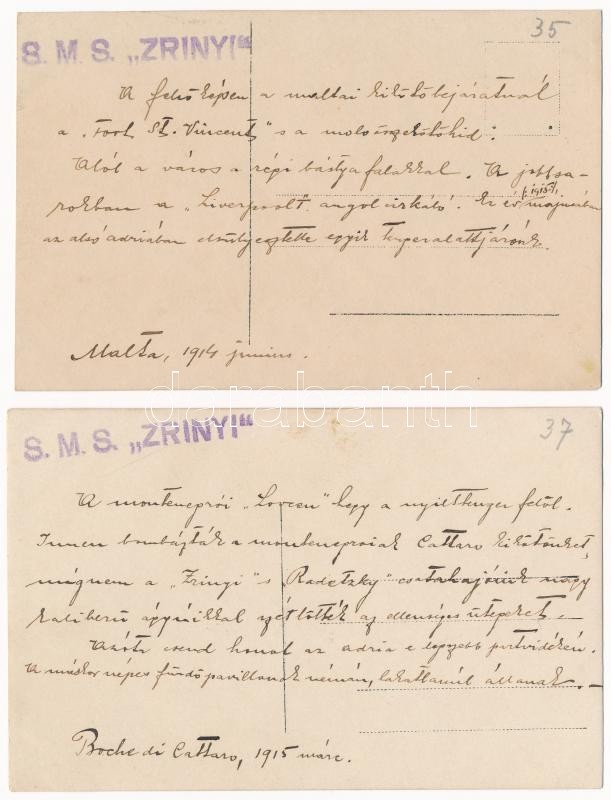 35
S. M. S. „ZRINYI“
A felső képen a maltai kikötőbejáratnál
a „Fort St. Vincent“ s a molóösszekötőhid.
Alól a város a régi bástyafalakkal. A jobbsa-
rokban a „Liverpool“ angol cirkáló. Ez év májusában
az alsó adriában elsülyesztette egyik tengeralattjárónk.
Malta, 1914 junius.
darabanth
37
S. M. S. „ZRINYI“
A montenegrói „Lovcen“ hegy a nyilttenger felöl.
Innen bombázták a montenegroiak Cattaro kikötőnket,
mignem a „Zrinyi“ s Radetzky“ csatahajóink nagy
kaliberü ágyúikkal szétlőtték az ellenséges ütegeket. –
Azóta csend honol az adria e legszebb partvidékén.
A máskor népes fürdőpavillonok némán, lakatlanúl állanak. –
Boche di Cattaro, 1915 márc.